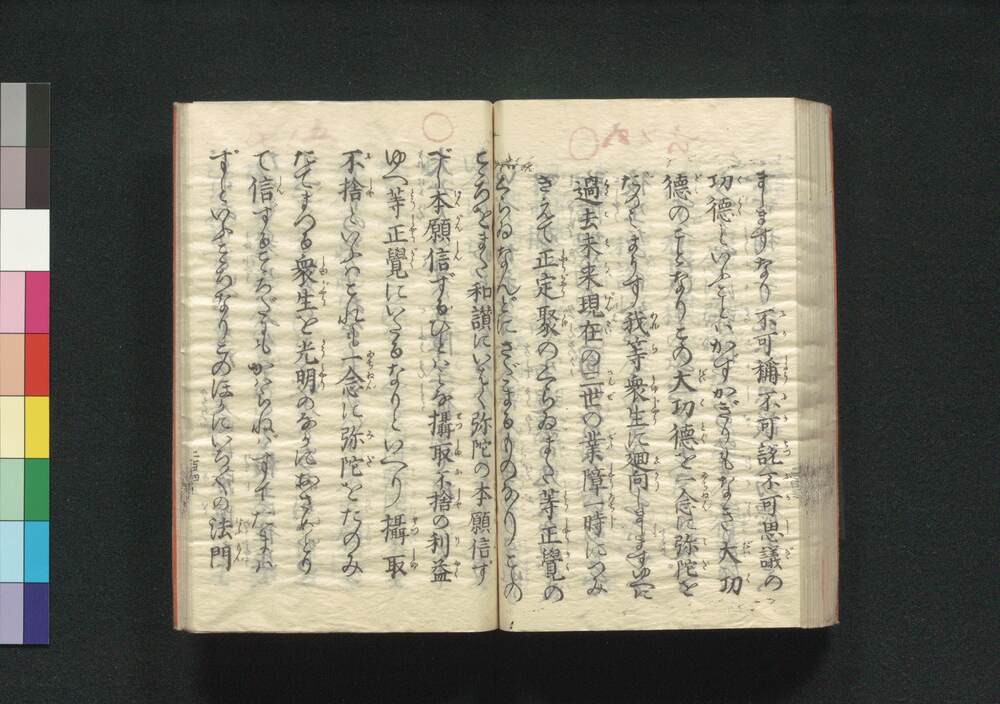 ましますなり不可稱不可説不可思議の
功德といふことはかずかぎりもなき大功
德のことなりこの大功德を一念に弥陀を
たのみまうす我等衆生に廻向しましますゆへに
過去未来現在の三世の業障一時につみ
きえて正定聚のくらゐまた等正覺の
くらゐなんどにさだまるものなりこの
こゝろをまた和讃にいはく弥陀の本願信ず
べし本願信ずるひとはみな攝取不捨の利益
ゆへ等正覺にいたるなりといへり攝取
不捨といふはこれも一念に弥陀をたのみ
たてまつる衆生を光明のなかにおさめとり
て信ずるこゝろだにもかはらねばすてたまは
ずといふこゝろなりこのほかにいろ〱の法門